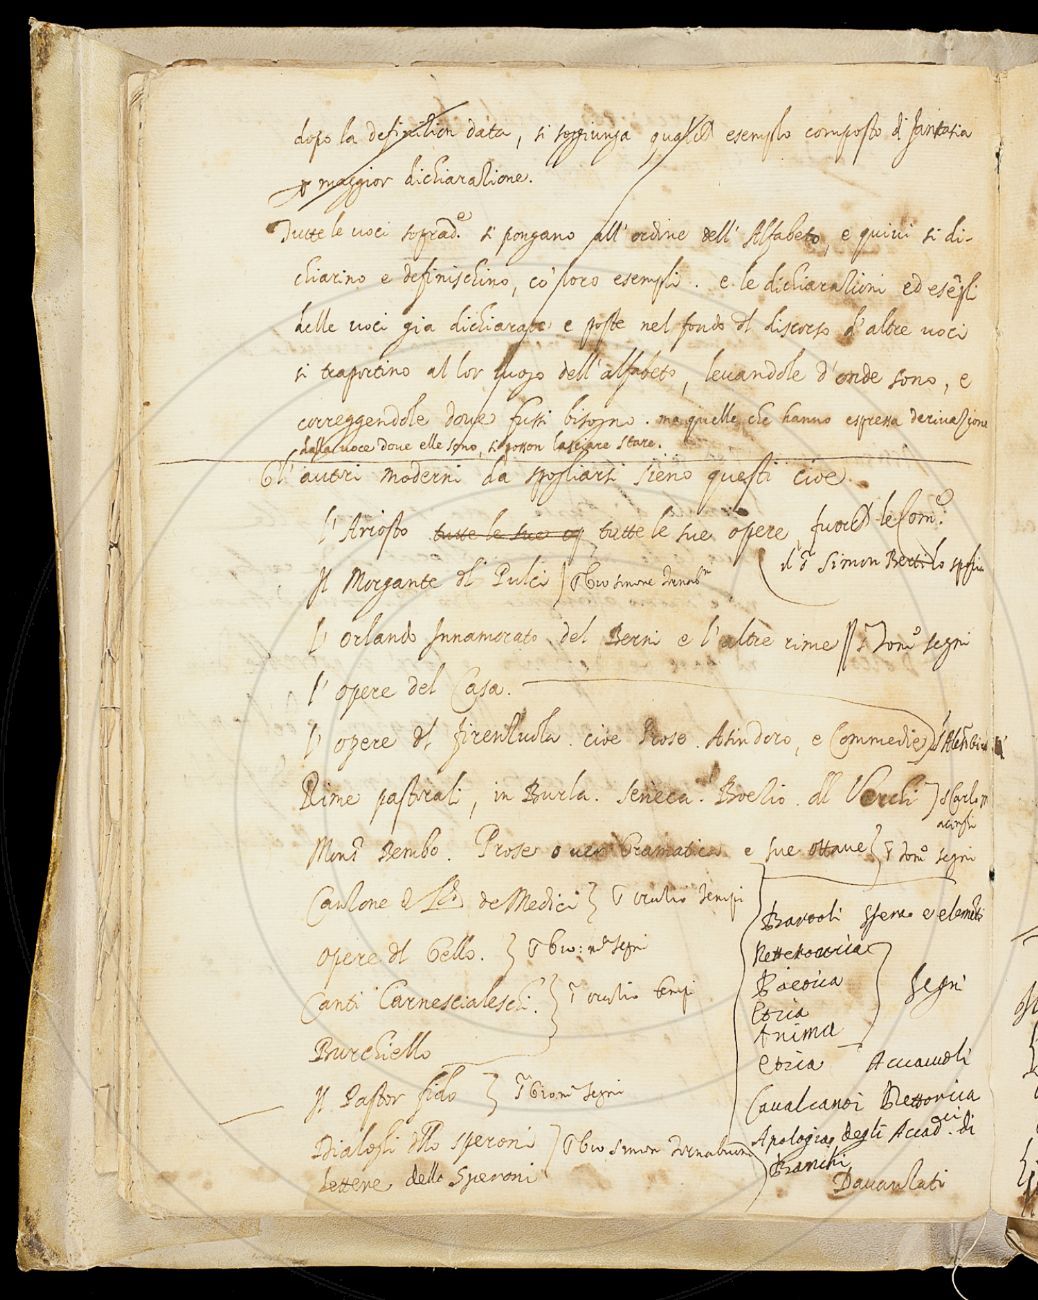 dopo la definition data, si soggiunga qualche esemplo composto di fantasia
maggior dichiarazione.
Tutte le voci soprad.e si pongano all' ordine dell' Alfabeto, e quivi si di-
chiarino e definischino, cō loro esempli. e le dichiarazioni ed esēpli
delle voci gia dichiarate e poste nel fondo dl discorso d' altre voci
si trasportino al lor luogo dell' alfabeto, levandole d' onde sono, e
correggendole dove fussi bisogno. ma quelle che hanno espressa derivazione
dalla voce dove elle sono, si posson lasciare stare.
Gl' autori moderni da spogliarsi sieno questi cioè.
l' Ariosto tutte le sue op tutte le sue opere fuor le Com.e
il Simon Berti lo
Il Morgante dl Pulci
L' orlando Innamorato del Berni e l' altre rime Tom.o segni
l' opere del Casa.
l' opere di firenzuola. cioè Prose. Asin doro, e Commedie
Rime pastorali, in Burla. Seneca. Boezio. dl Varchi Carlo
Mons Bembo. Prose o ver Gramatica e sue ottave Tom.o segni
Canzone de Medici
Opere dl Gello. segni
Canti Carnescialeschi.
Burchiello
Il Pastor fido segni
Dialoghi dllo speroni simon
Lettere dello Speroni
Bartoli e elementi
Rettorica
Poetica
Etica
Anima
Segni
Etica Acciaiuoli
Cavalcanti Rettorica
Apologia degli Accad.ci di
Bianchi
Davanzati